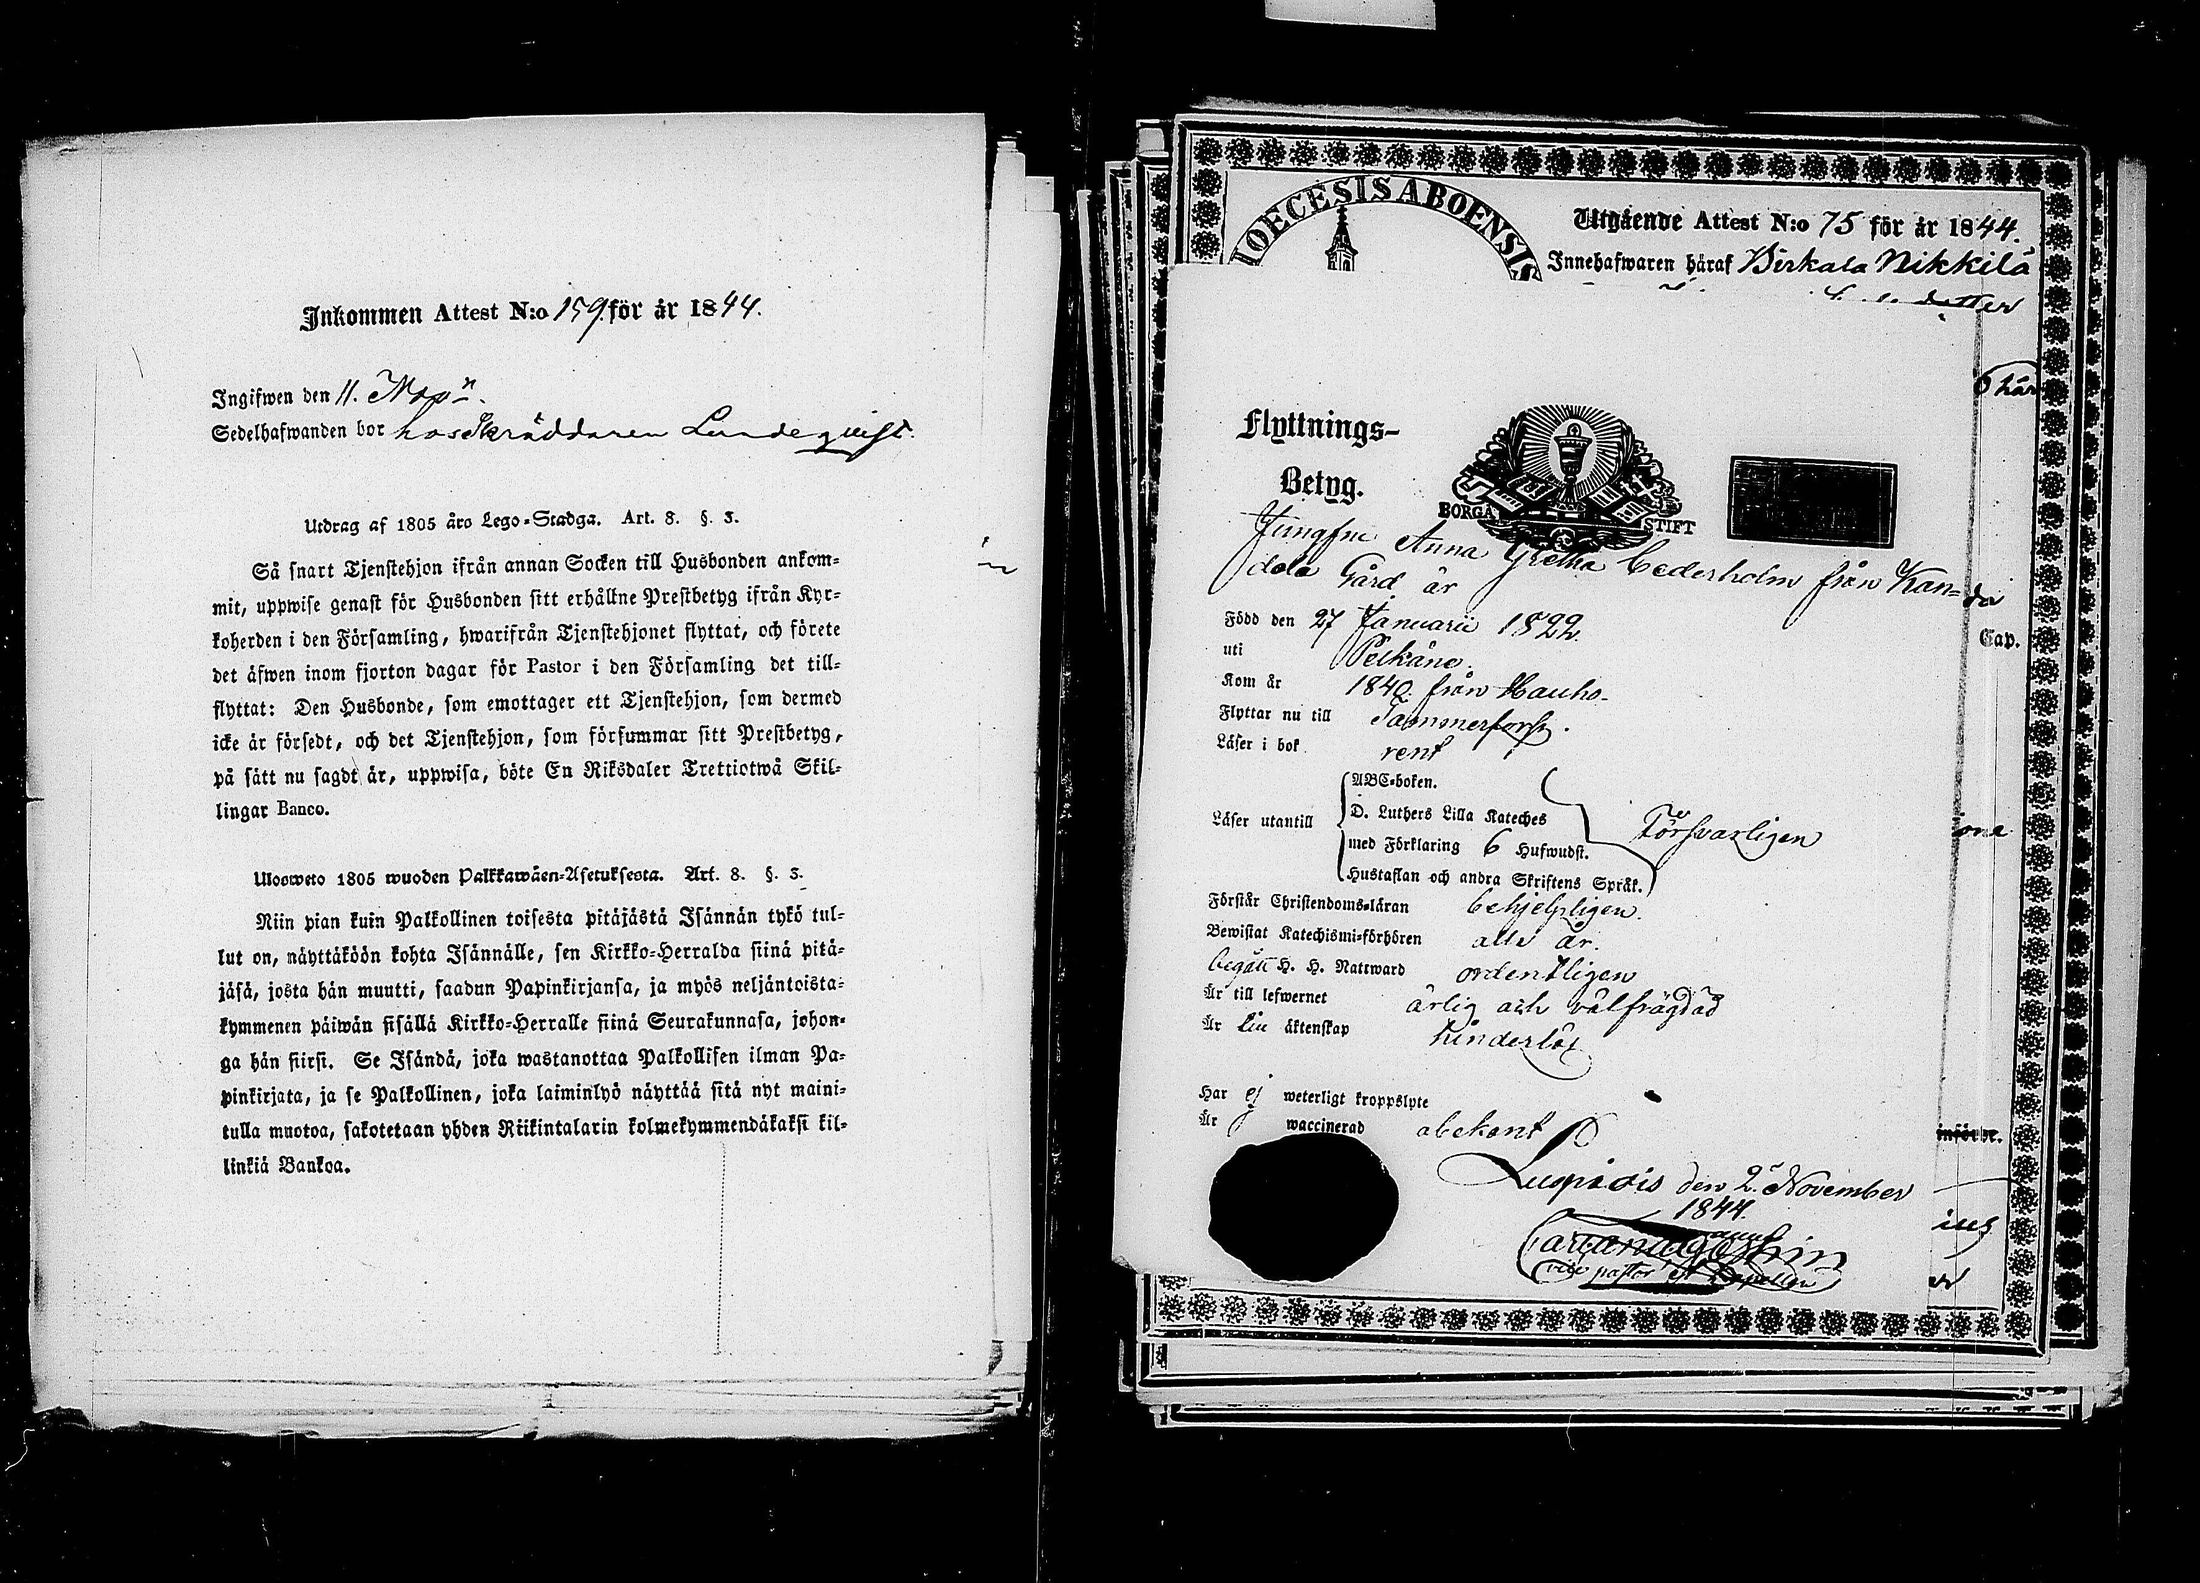 Inkommen Attest N:o 159. för år 1844.
Ingifwen den 11. Nov:r
Sedelhafwanden bor hos Skräddaren Lundeqvist.
Utdrag af 1805 års Lego-Stadga. Art. 8. §. 3.
Så snart Tjenstehjon ifrån annan Socken till Husbonden ankom-
mit, uppwise genast för Husbonden sitt erhållne Prestbetyg ifrån Kyr-
koherden i den Församling, hwarifrån Tjenstehjonet flyttat, och förete
det äfwen inom fjorton dagar för Pastor i den Församling det till-
flyttat: Den Husbonde, som emottager ett Tjenstehjon, som dermed
icke är försedt, och det Tjenstehjon, som försummar sitt Prestbetyg,
på sätt nu sagdt är, uppwisa, böte En Riksdaler Trettiotwå Skil-
lingar Banco.
Ulosweto 1805 wuoden Palkkawäen-Asetuksesta. Art. 8. §. 3.
Niin pian kuin Palkollinen toisesta pitäjästä Isännän tykö tul-
lut on, näyttäköön kohta Isännälle, sen Kirkko-Herralda siinä pitä-
jäsä, josta hän muutti, saadun Papinkirjansa, ja myös neljäntoista-
kymmenen päiwän sisällä Kirkko-Herralle siinä Seurakunnasa, johon-
ga hän siirsi. Se Isändä, joka wastanottaa Palkollisen ilman Pa-
pinkirjata, ja se Palkollinen, joka laiminlyö näyttää sitä nyt maini-
tulla muotoa, sakotetaan yhden Riikintalarin kolmekymmendäkaksi kil-
linkiä Bankoa.
IOECESIS ABOENSIS
Utgående Attest N:o 75 för år 1844.
Innehafwaren häraf Birkala Nikkilä
dotter
Flyttnings-
Betyg.
BORGÅ STIFT
Jungfru Anna Gretha Cederholm från Kan-
dola Gård är
Född den 27 Januarii 1822.
uti Pelkäne.
Kom år 1840. från Hauho.
Flyttar nu till Tammerfors.
Läser i bok rent
Läser utantill
ABC-boken.
D. Luthers Lilla Kateches
med Förklaring 6 Hufwudst.
Hustaflan och andra Skriftens Språk.
Försvarligen
Förstår Christendoms-läran behjelpligen.
Bewistat Katechismi-förhören alla år.
begått H. H. Nattward ordentligen
Är till lefwernet ärlig och välfrägdad
Är till äktenskap hinderlös
Har ej weterligt kroppslyte
Är waccinerad obekant
Luopiois den 2. November
1844.
vice pastor et Capellan
Cap.